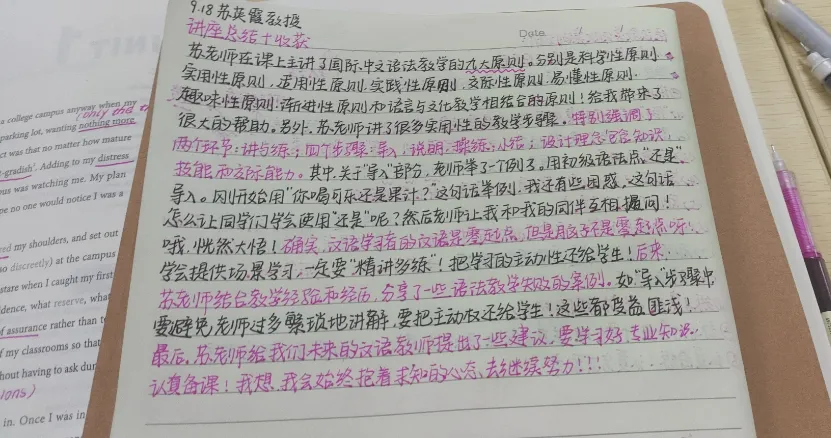 9.18苏英霞教授
讲座总结+收获
Date
苏老师在课上主讲了国际中文语法教学的九大原则。分别是科学性原则
实用性原则,适用性原则,实践性原则,交际性原则,易懂性原则.
趣味性原则,渐进性原则和语言与文化教学相结合的原则!给我带来了
很大的帮助。另外,苏老师讲了很多实用性的教学步骤。特别强调了
两个环节:讲与练;四个步骤:导入,说明,操练,小结;设计理念包含知识,
技能和交际能力。其中,关于“导入”部分,老师举了一个例子。用初级语法点“还是”
导入。刚开始用“你喝可乐还是果汁?”这句话举例,我还有些困惑,这句话
怎么让同学们学会使用“还是”呢?然后老师让我和我的同伴互相提问!
哦,恍然大悟!确实,汉语学习有的汉语是零起点,但是脑子不是零起点呀!
学会提供场景学习,一定要“精讲多练”!把学习的主动性还给学生!后来,
苏老师结合教学经验和经历,分享了一些语法教学失败的案例。如“导入”步骤中
要避免老师过多繁琐地讲解,要把主动权还给学生!这些都受益匪浅!
最后,苏老师给我们未来的汉语教师提出了一些建议,要学好专业知识.
认真备课!我想,我会始终抱着求知的心态,去继续努力!!!
a college campus anyway when my
parking lot, wanting nothing more
ct was that no matter how mature
-gradish'. Adding to my distress
us was watching me. My plan
pe no one would notice I was a
my shoulders, and set out
discreetly) at the campus
state when I caught my first
dence, what reserve, what
of assurance rather than
f my classrooms so that
hout having to ask
in. Once I was in